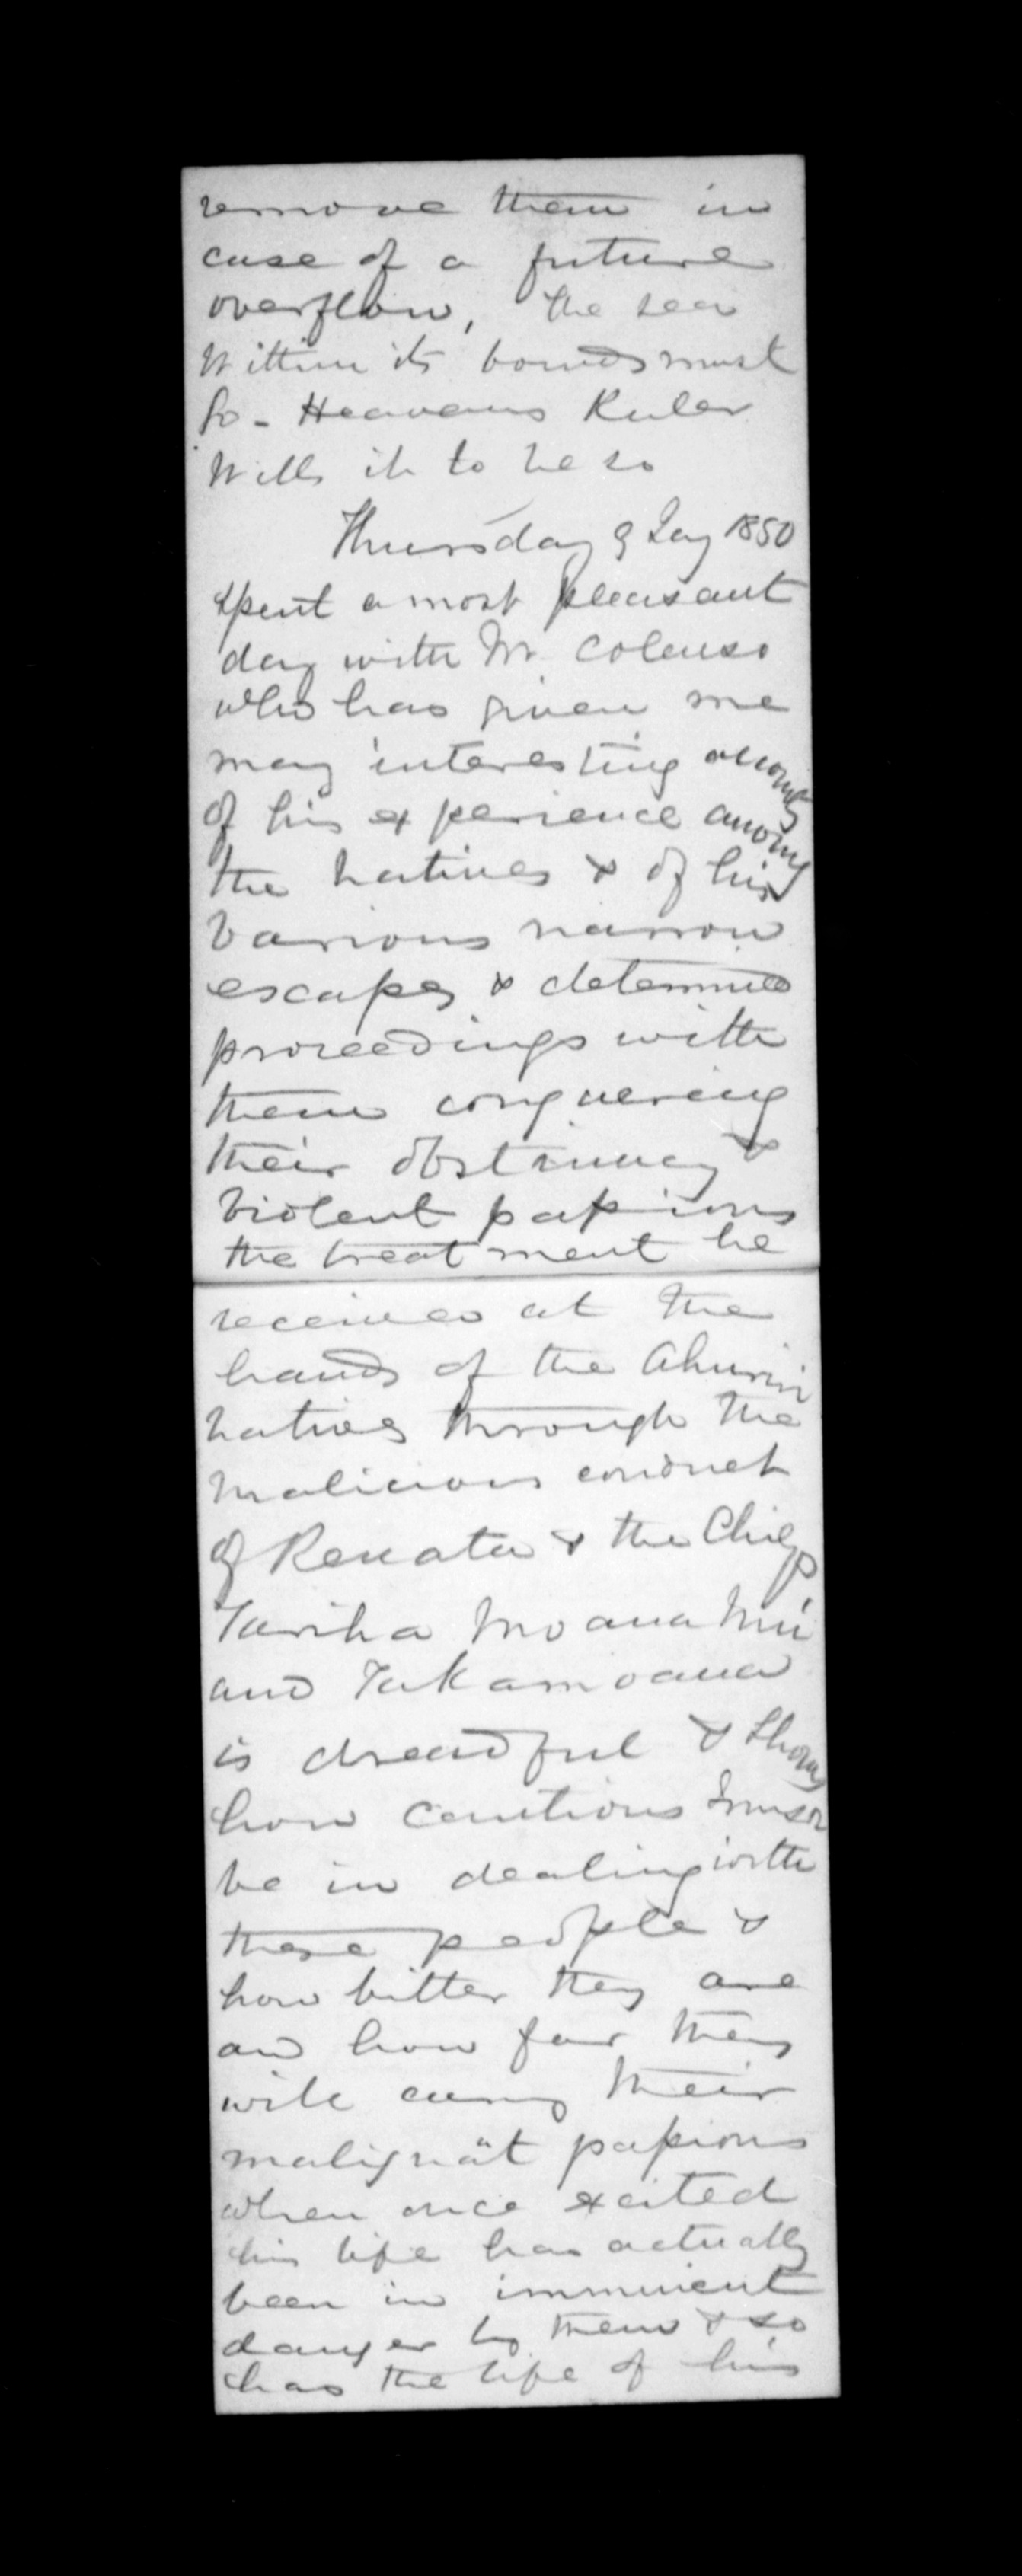 remove them in
case of a future
overflow, the sea
Within its bounds must
go - Heavens Ruler
Wills it to be so
Thursday 9 Jany 1850
Spent a most pleasant
day with Mr Colenso
who has given me
many interesting accounts
of his experience among
the natives & of his
various narrow
escapes & determined
proceedings with
them conquering
their obstinacy &
violent passions
the treatment he
received at the
hands of the Ahuriri
natives through the
malicious conduct
of Renata & the Chiefs
Tariha Moananui
and Takamoana
is dreadful & shows
how cautious I must
be in dealing with
these people &
how bitter they are
and how far they
will carry their
malignat passions
when once excited
his life has actually
been in imminent
danger by them & so
has the life of his